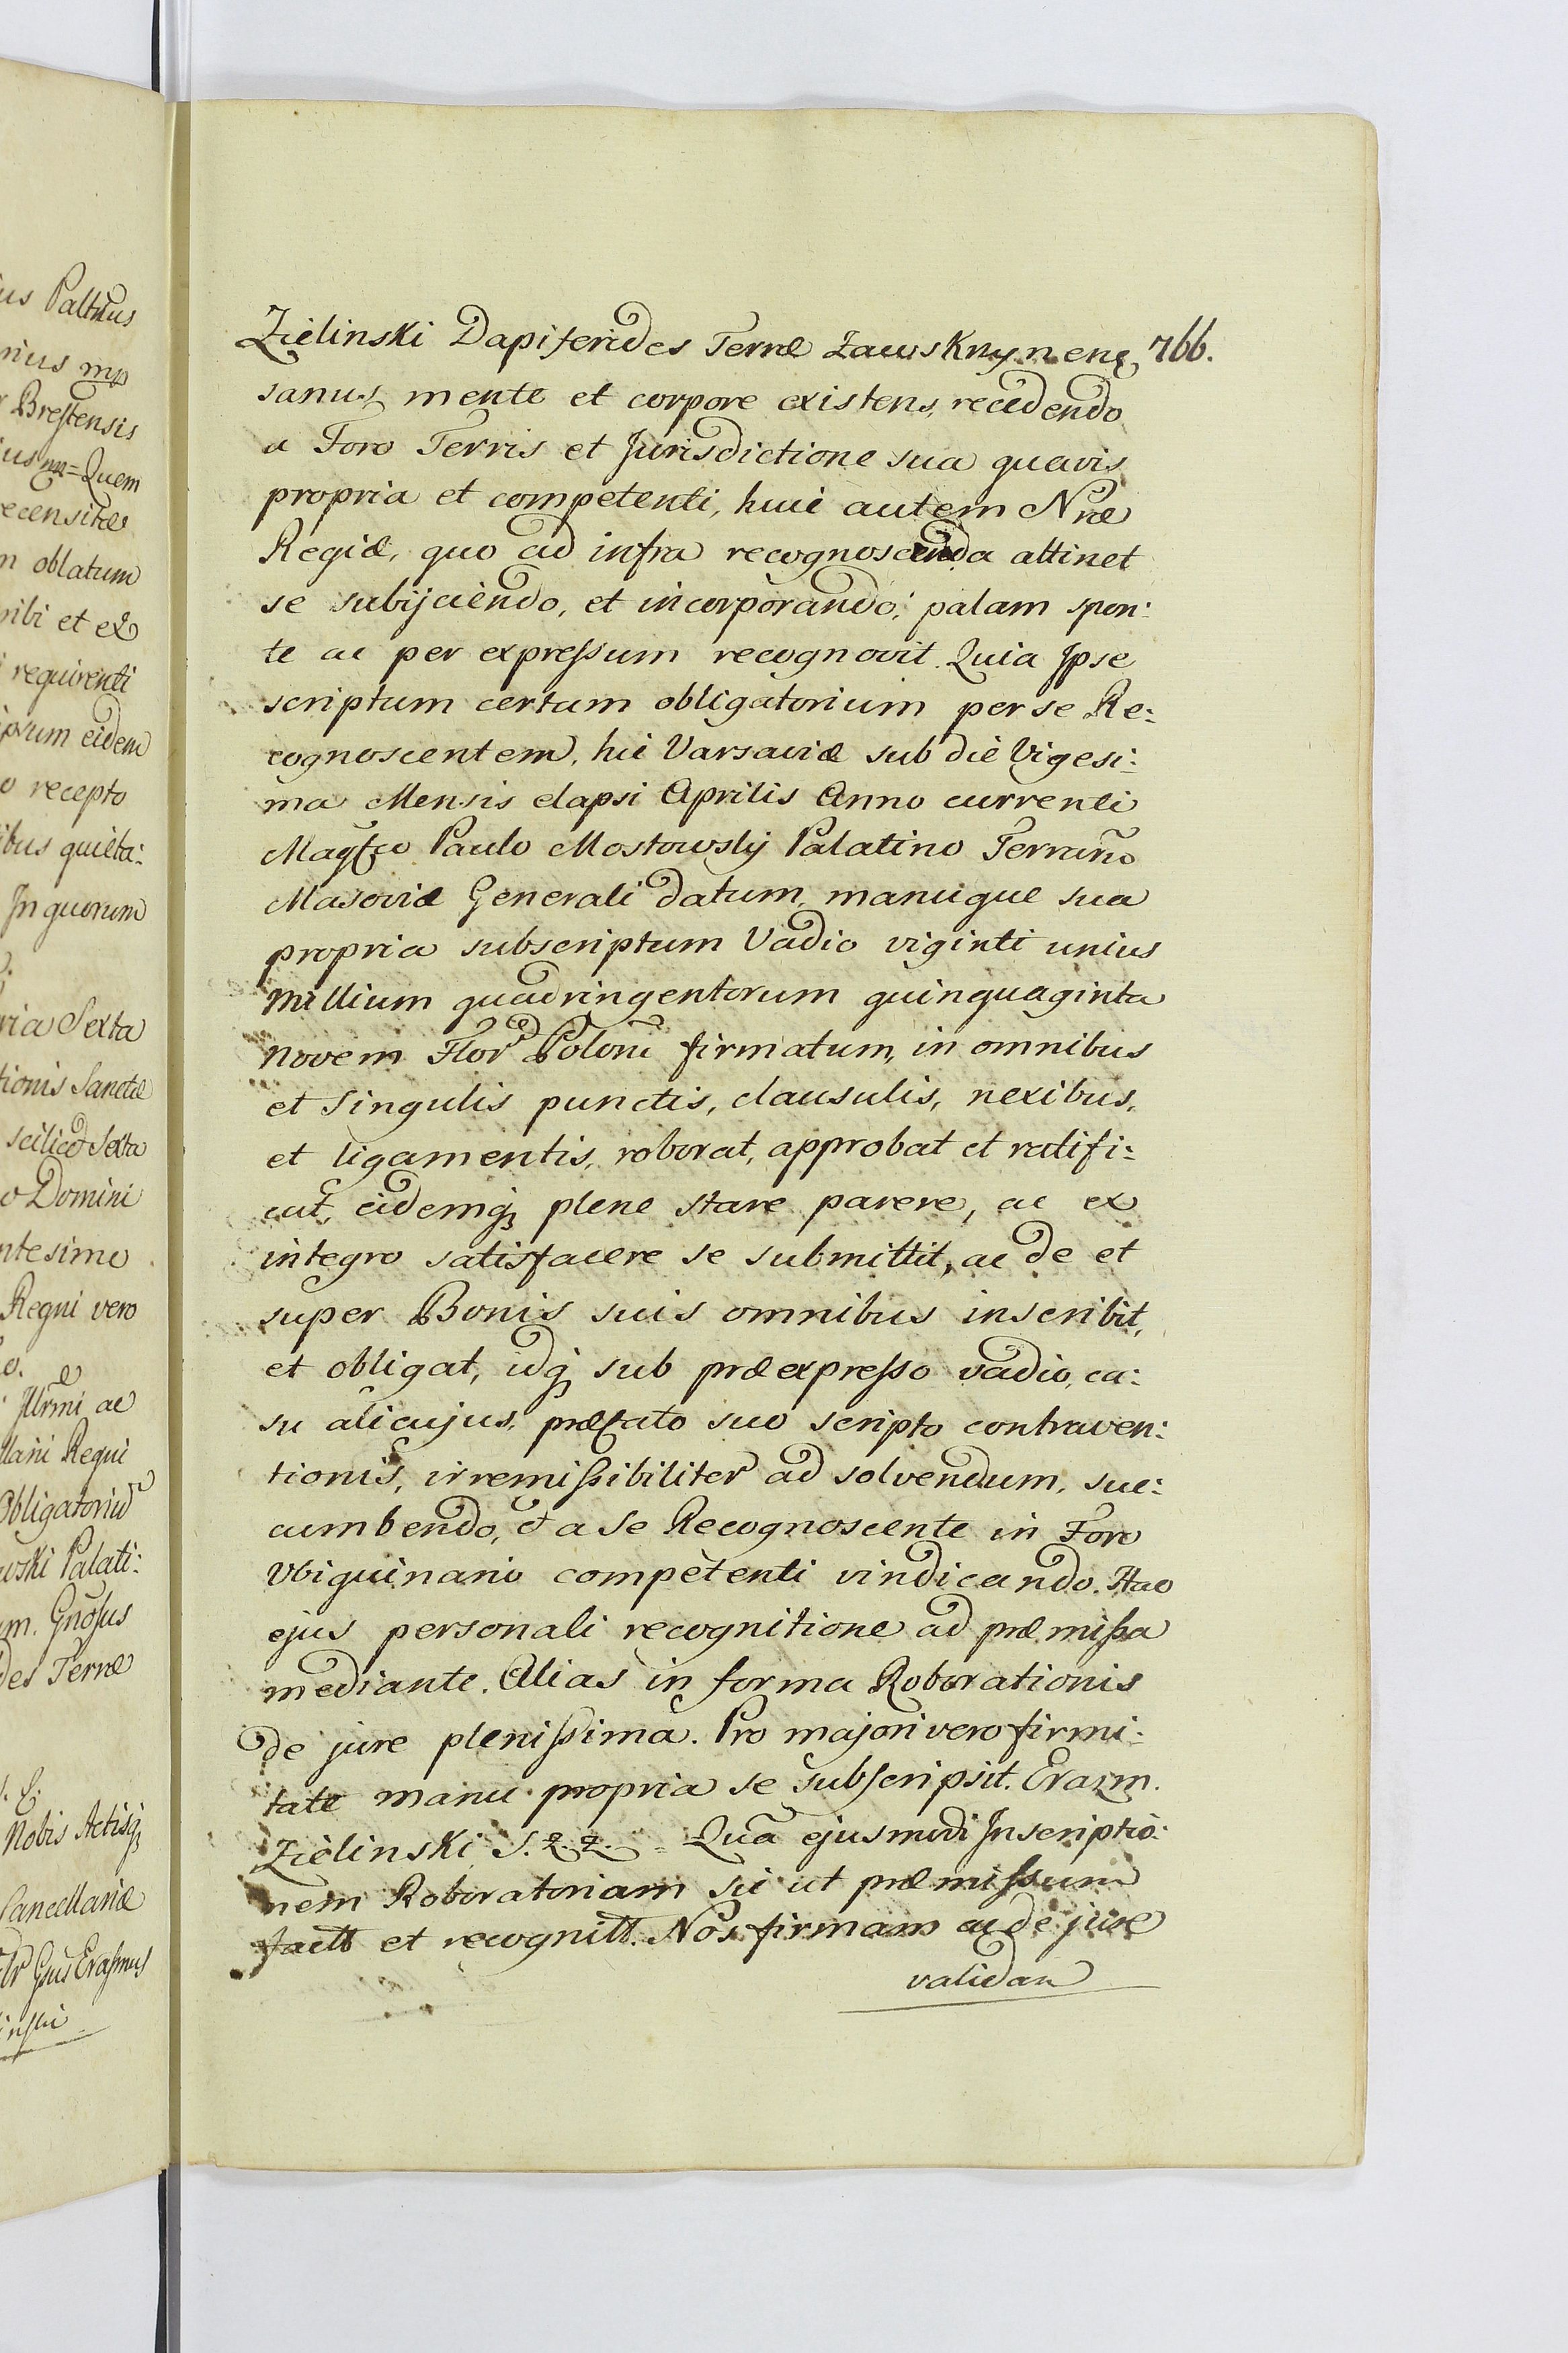 us Paltnus
nius mp
Brestensis
ius mp = Quem
recensitæ
m oblatum
sibi et ex
requirenti
ipsum eidem
o recepto
ibus quieta:
In quorum
ria Sexta
tionis Sanctæ
scilicet Sexta
o Domini
ntesimo
Regni vero
Illrmi ac
llarii Regni
Obligatoriu
wski Palati:
um. Gnosus
des Terræ
Nobis Actisq
Cancellariæ
Gnus Erasmus
inski
Zielinski Dapiferides Terræ Zawskrzynens, 766.
sanus mente et corpore existens, recedendo
a Foro Terris et Jurisdictione sua quavis
propria et competenti, huic autem Nræ
Regiæ, quo ad infra recognoscenda attinet
se subijciendo, et incorporando; palam spon:
te ac per expressum recognovit. Quia Ipse
scriptum certum obligatorium per se Re:
cognoscentem, hic Varsaviæ sub die Vigesi:
ma Mensis elapsi Aprilis Anno currenti
Magfco Paulo Mostowsky Palatino Terraru
Masoviæ Generali datum, manuque sua
propria subscriptum Vadio viginti unius
millium quadringentorum quinquaginta
novem Flor Polon firmatum, in omnibus
et Singulis punctis, clausulis, nexibus,
et ligamentis, roborat, approbat et ratifi:
cat, eidemq plene stare parere, ac ex
integro satisfacere se submittit, ac de et
super Bonis suis omnibus inscribit,
et obligat, idq sub præexpresso vadio, ca:
su alicujus, præfato suo scripto contraven:
tionis, irremissibiliter ad solvendum, suc:
cumbendo, et a Se Recognoscente in Foro
Ubiquinario competenti vindicando. Hac
ejus personali recognitione ad præmissa
mediante. Alias in forma Roborationis
de jure plenissima. Pro majori vero firmi:
tate manu propria se subscripsit. Erazm.
Zielinski S. Z. Z. = Qua ejusmodi Inscriptio:
nem Roboratoriam sic ut præmissum
factt et recognitt. Nos firmam ac de jure
validam